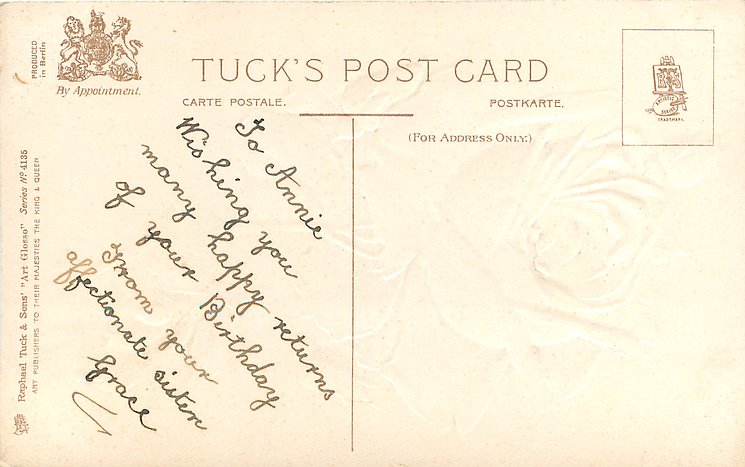 PRODUCED
in Berlin
By Appointment.
TUCK'S POST CARD
CARTE POSTALE.
POSTKARTE.
(FOR ADDRESS ONLY.)
ARTISTIC
SERIES
TRADEMARK.
Raphael Tuck & Sons' "Art Glosso" Series Nº 4135
ART PUBLISHERS TO THEIR MAJESTIES THE KING & QUEEN
To Annie
Wishing you
many happy returns
of your Birthday
From your
affectionate sister
Grace